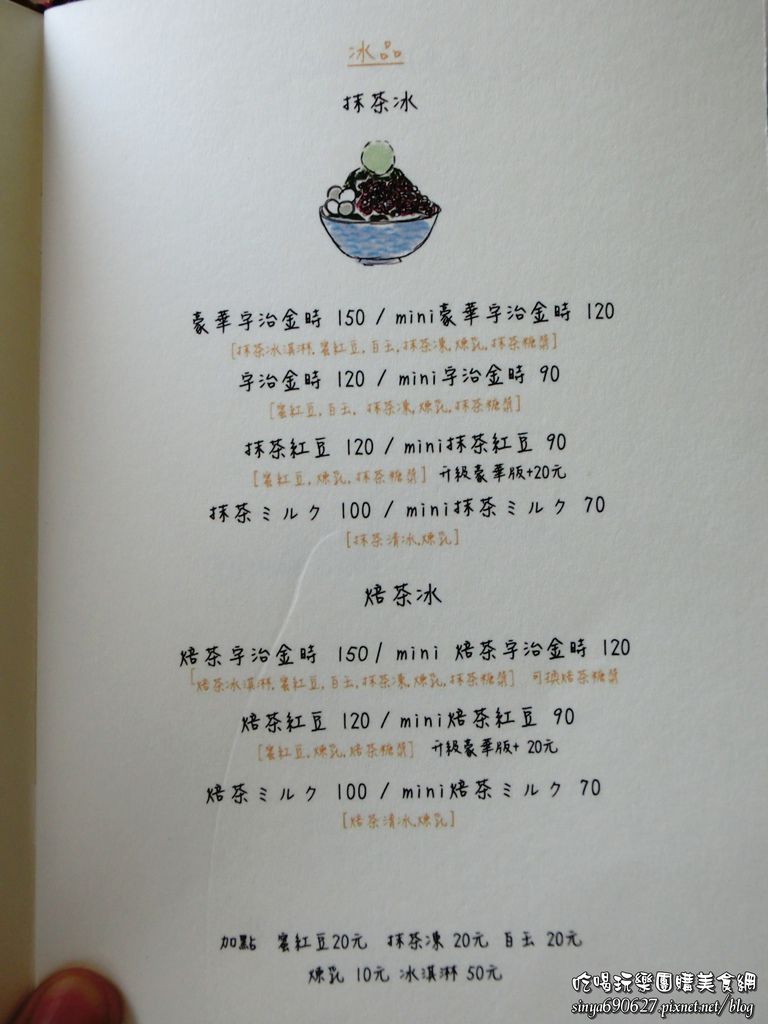 冰品
抹茶冰
豪華宇治金時 150 / mini豪華宇治金時 120
[抹茶冰淇淋,蜜紅豆,白玉,抹茶凍,煉乳,抹茶糖漿]
宇治金時 120 / mini宇治金時 90
[蜜紅豆,白玉, 抹茶凍,煉乳,抹茶糖漿]
抹茶紅豆 120 / mini抹茶紅豆 90
[蜜紅豆,煉乳,抹茶糖漿] 升級豪華版+20元
抹茶ミルク 100 / mini抹茶ミルク 70
[抹茶清冰,煉乳]
焙茶冰
焙茶宇治金時 150 / mini 焙茶宇治金時 120
[焙茶冰淇淋,蜜紅豆,白玉,抹茶凍,煉乳,抹茶糖漿] 可換焙茶糖漿
焙茶紅豆 120 / mini焙茶紅豆 90
[蜜紅豆,煉乳,焙茶糖漿] 升級豪華版+ 20元
焙茶ミルク 100 / mini焙茶ミルク 70
[焙茶清冰,煉乳]
加點 蜜紅豆20元 抹茶凍 20元 白玉 20元
煉乳 10元 冰淇淋 50元
吃喝玩樂團購美食網
sinya690627.pixnet.net/blog